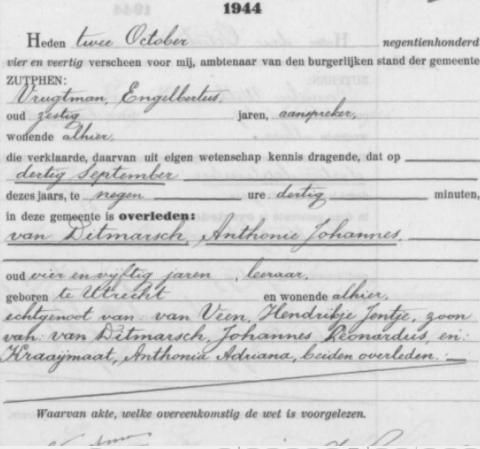 1944
Heden twee October negentienhonderd
vier en veertig verscheen voor mij, ambtenaar van den burgerlijken stand der gemeente
ZUTPHEN:
Vrugtman, Engelbertus,
oud zestig jaren, aanspreker,
wonende alhier,
die verklaarde, daarvan uit eigen wetenschap kennis dragende, dat op
dertig September
dezes jaars, te negen ure dertig minuten,
in deze gemeente is overleden:
van Ditmarsch, Anthonie Johannes,
oud vier en vijftig jaren, leeraar,
geboren te Utrecht en wonende alhier,
echtgenoot van: van Veen, Hendrikje Jentje, zoon
van: van Ditmarsch, Johannes Leonardus, en:
Kraaijmaat, Anthonia Adriana, beiden overleden.
Waarvan akte, welke overeenkomstig de wet is voorgelezen.